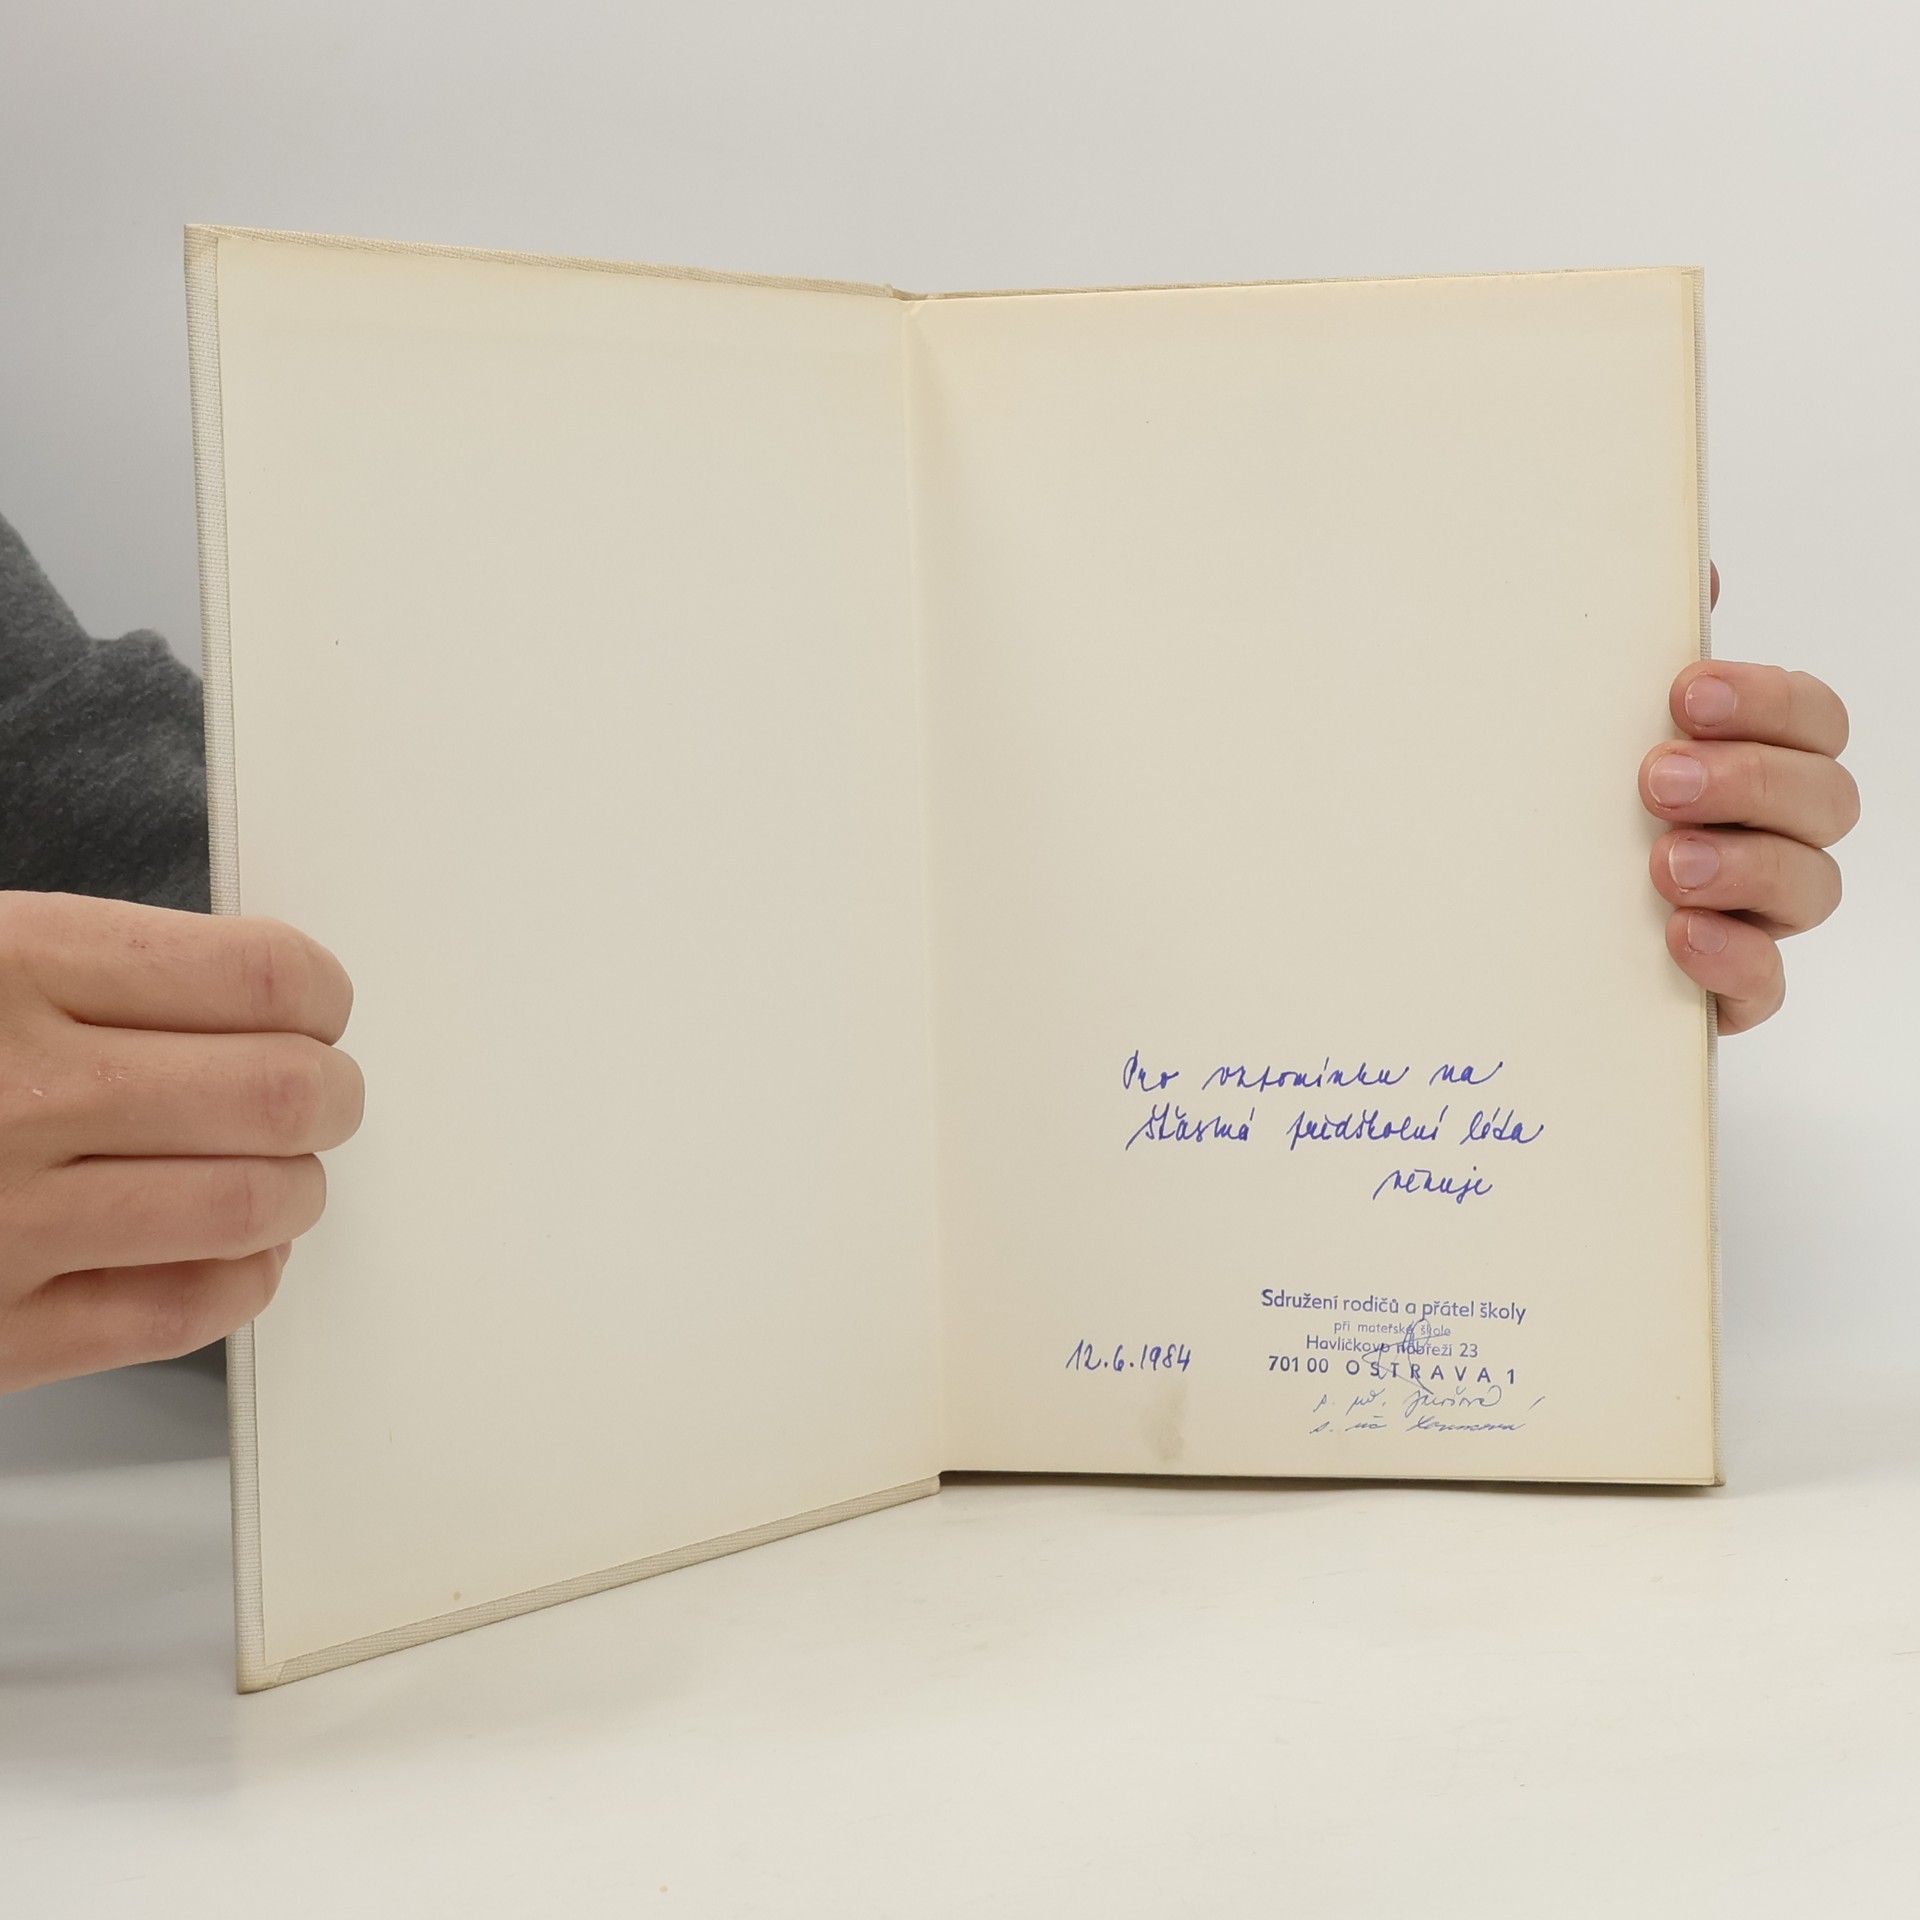 Pro vzpomínku na
šťastná předškolní léta
věnuje
Sdružení rodičů a přátel školy
při mateřské škole
Havlíčkovo nábřeží 23
701 00 OSTRAVA 1
12.6.1984
s. uč.